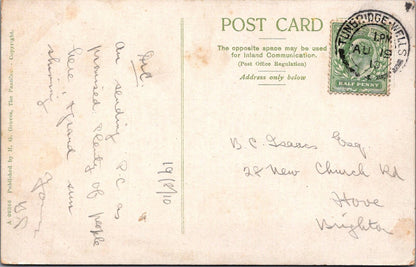 POST CARD
The opposite space may be used
for Inland Communication.
(Post Office Regulation)
Address only below
TUNBRIDGE-WELLS
AU 19
10
HALF PENNY
A 60246 Published by H. G. Groves, The Pantiles. Copyright.
19/8/10
Am sending P.C as
promised. Plenty of people
here & grand sun
shining
Yours
B.C. Isaacs Esq.
28 New Church Rd
Hove
Brighton